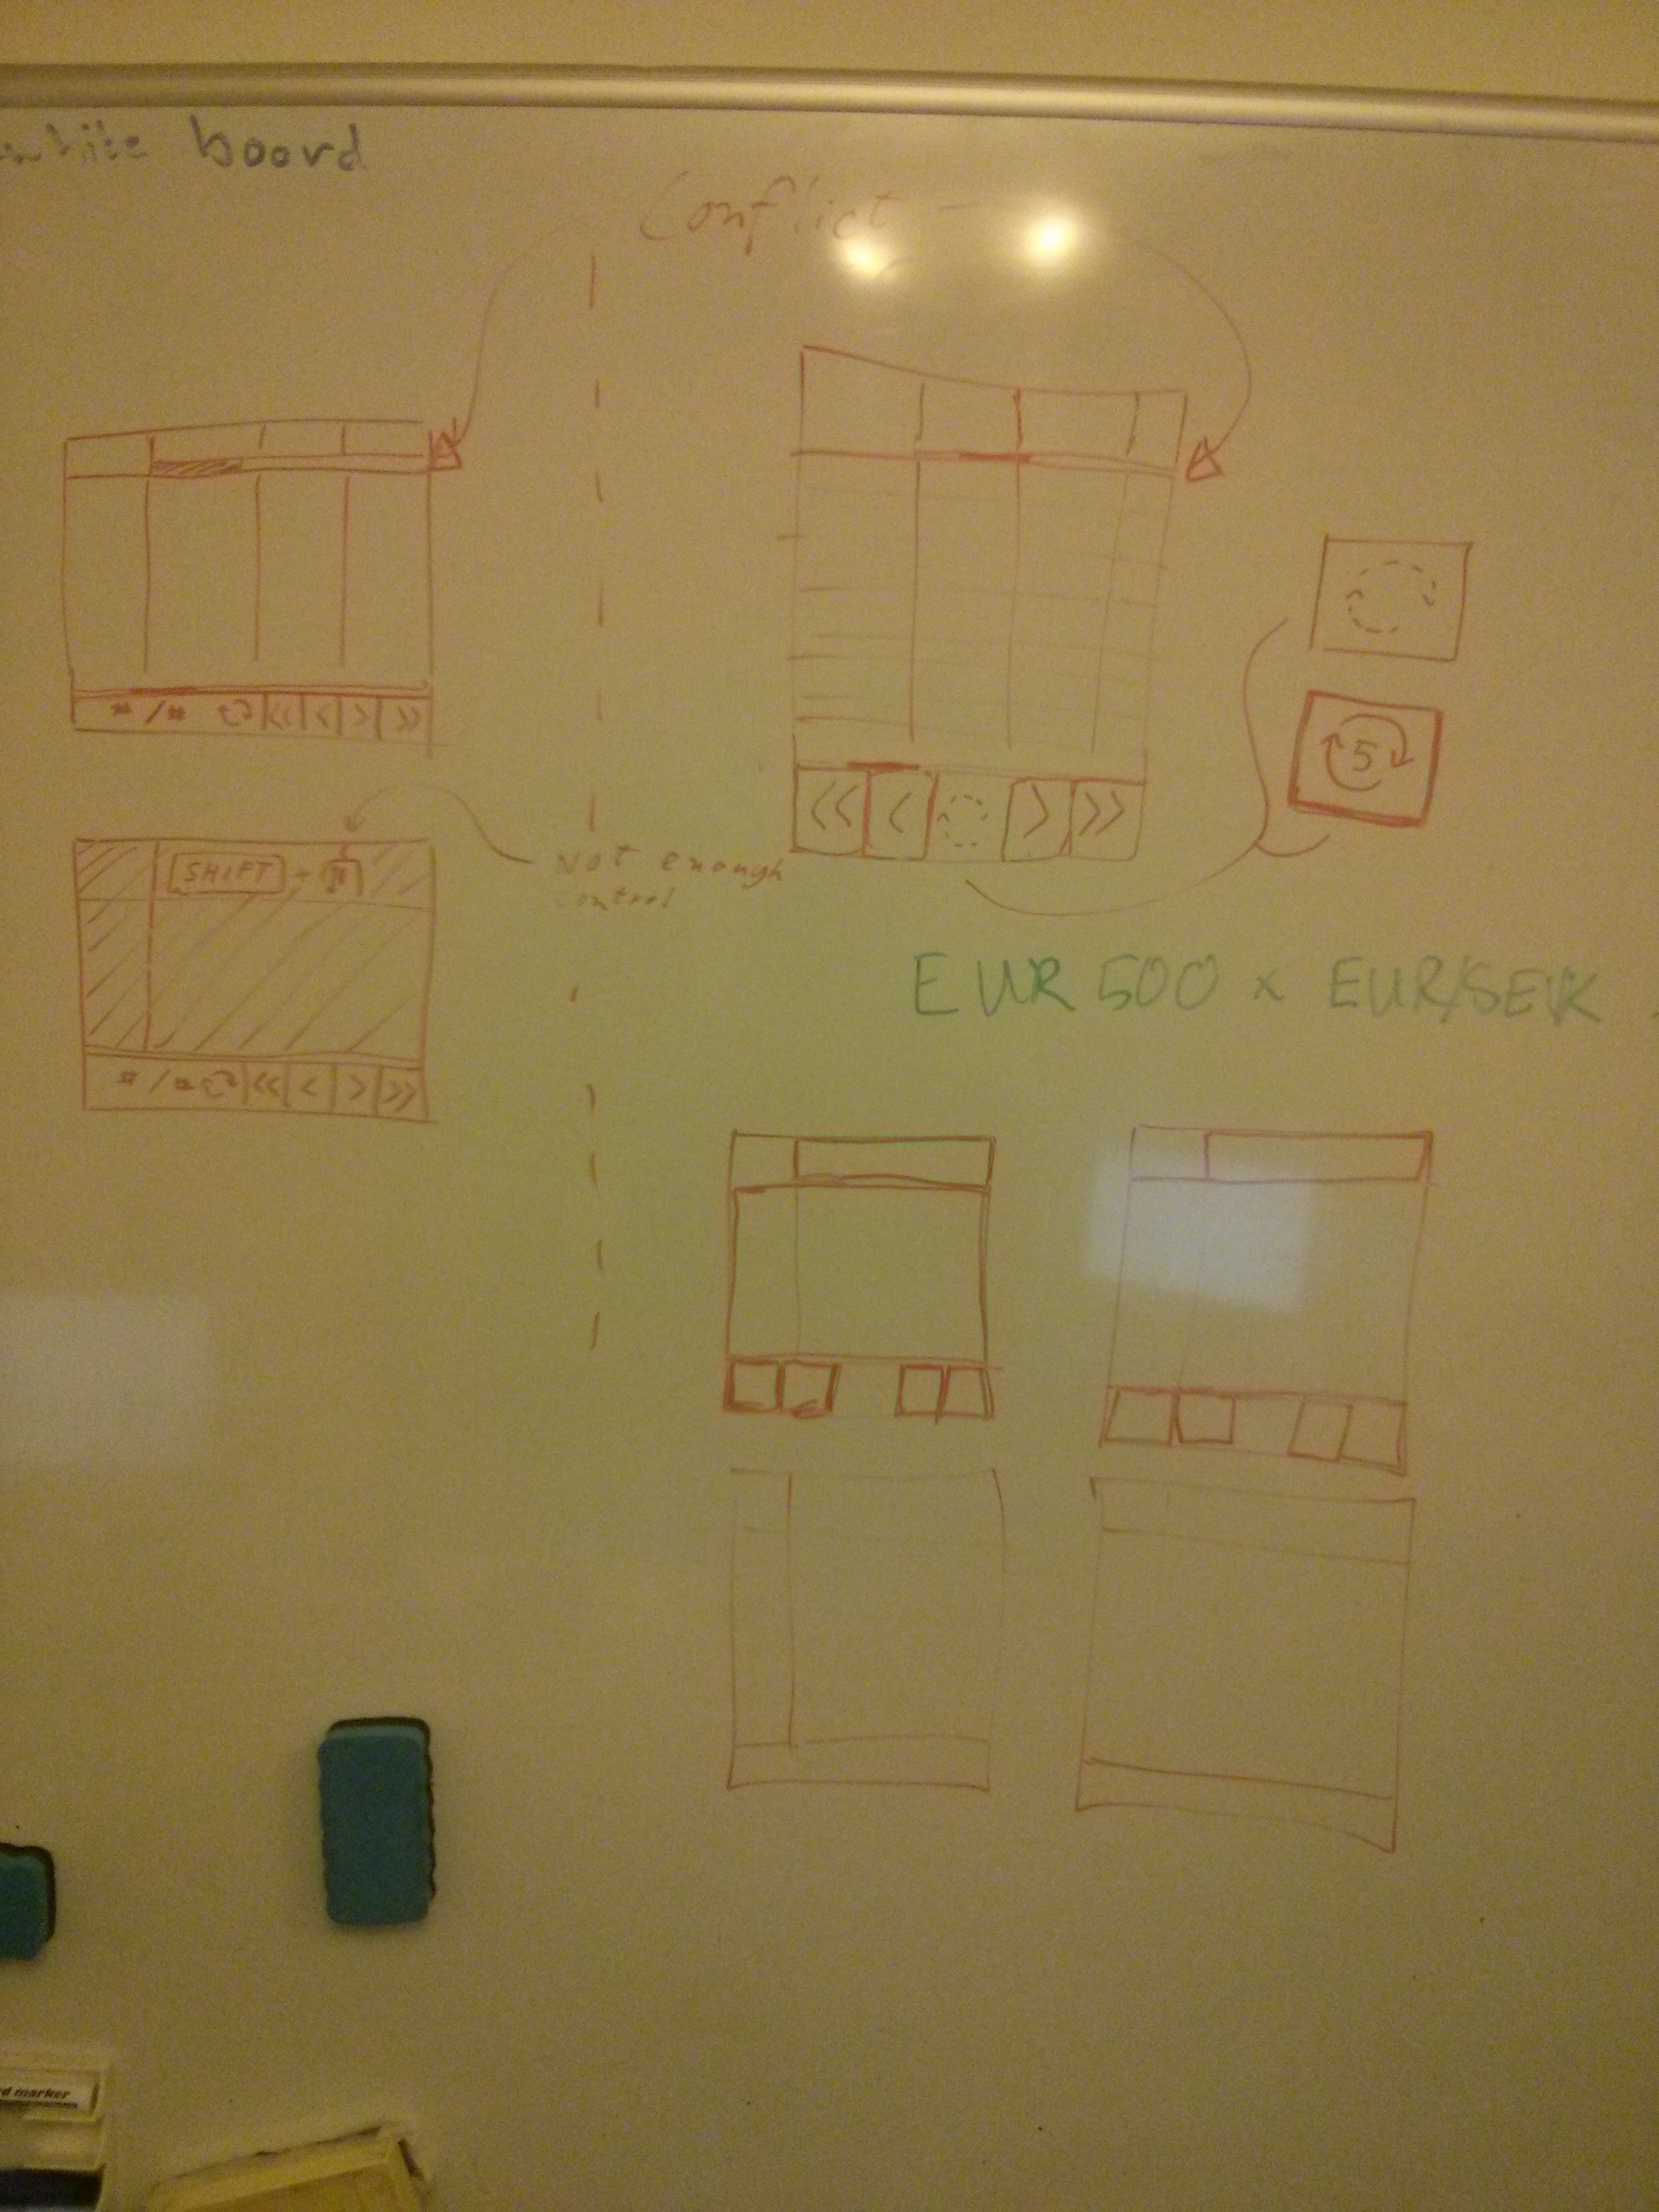 white board
Conflict
# / # << < > >>
<< < > >>
5
SHIFT +
Not enough
control
# / # << < > >>
EUR 500 x EUR/SEK
d marker